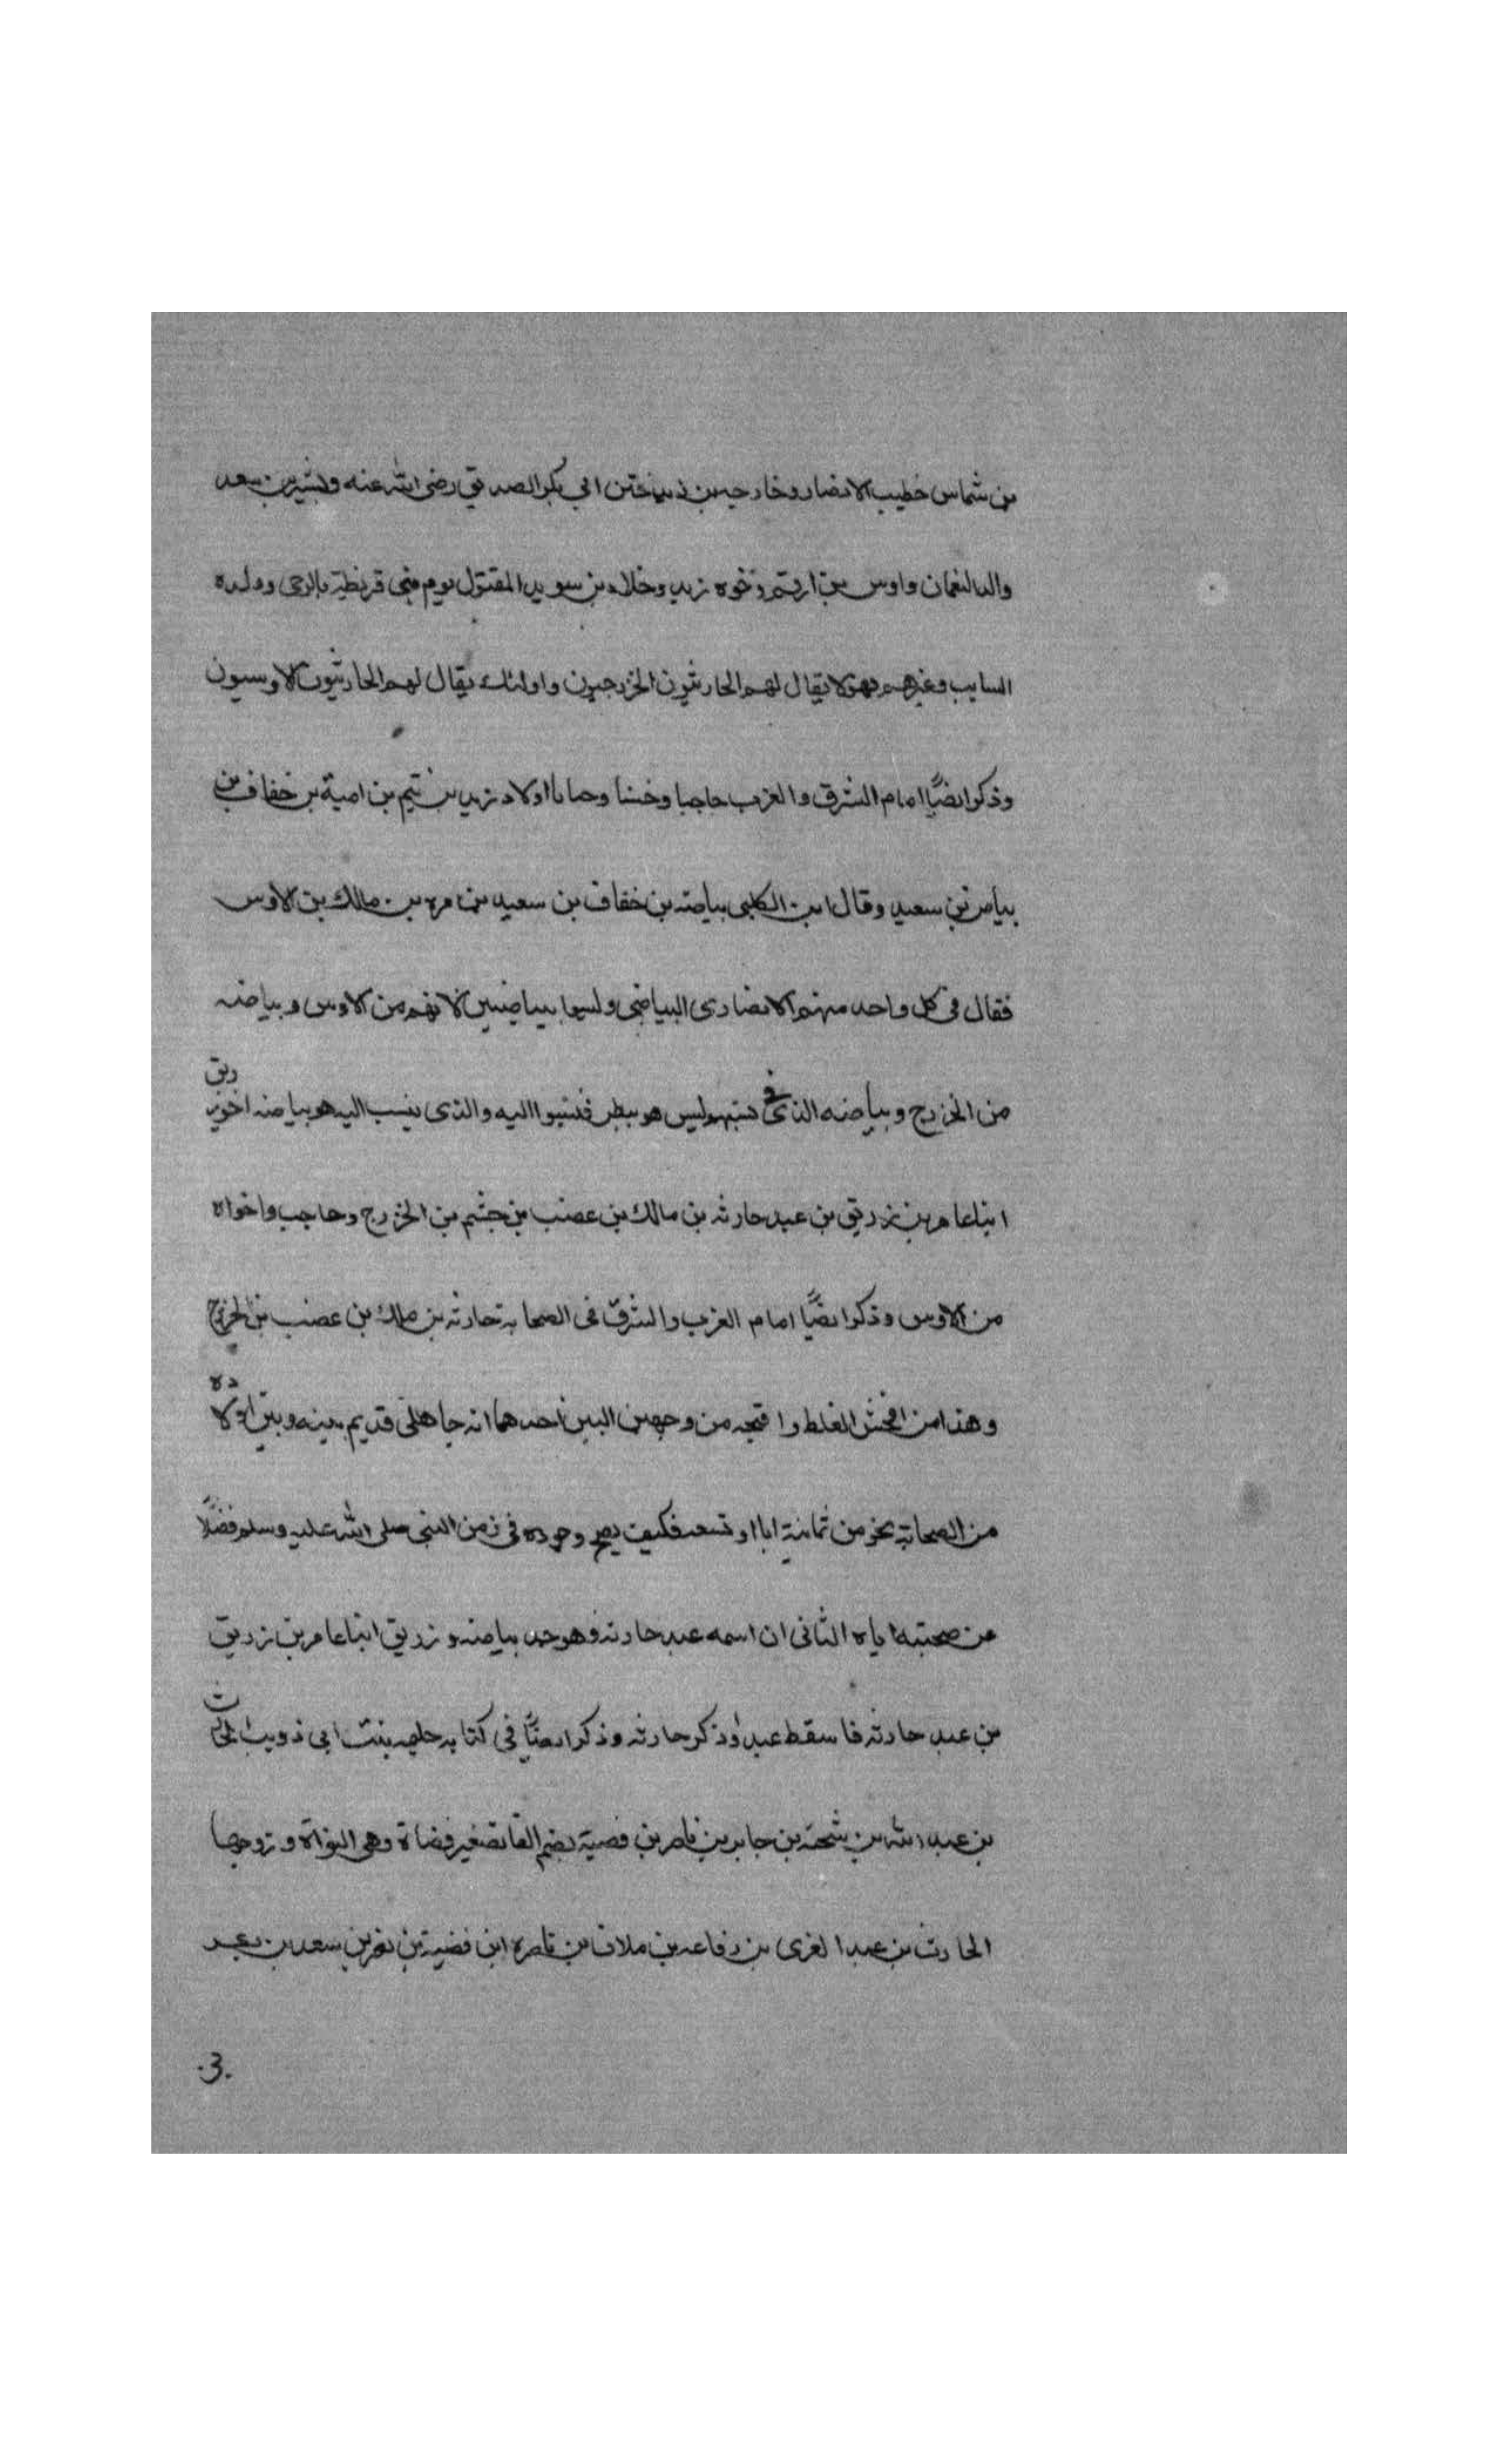 بن شماس خطيب الانصار وخارجه بن زيد ختن ابي بكر الصديق رضي الله عنه وبشير بن سعد
والد النعمان واوس بن ارقم وخوه زيد وخلاد بن سويد المقتول يوم بني قريظة بالرحى وولده
السايب وغيرهم فهؤلا يقال لهم الحارثيون الخزرجيون واولئك يقال لهم الحارثيون الاوسيون
وذكر ايضًا امام الشرق والغرب حاجبا وخنسا وحبابا اولاد زيد بن تيم بن امية بن خفاف بن
بياضة بن سعيد وقال ابن الكلبي بياضه بن خفاف بن سعيد بن مره بن مالك بن الاوس
فقال في كل واحد منهم الانصاري البياضي وليسوا ببياضيين لانهم من الاوس وبياضه
من الخزرج وبياضه الذي في نسبهم ليس هو ببطن فنسبوا اليه والذي ينسب اليه هو بياضه اخو زريق
ابنا عامر بن زريق بن عبد حارثه بن مالك بن عضب بن جشم بن الخزرج وحاجب واخواه
من الاوس وذكر ايضًا امام الغرب والشرق في الصحابة حارثه بن مالك بن عضب بن الخزرج
وهذا من افحش الغلط واقبحه من وجهين اثنين احدهما انه جاهلي قديم بينه وبين اولاده
من الصحابة نحو من ثمانية ابا او تسعه فكيف يصح وجوده في زمن النبي صلى الله عليه وسلم فضلًا
من صحبته اياه الثاني ان اسمه عبد حارثه وهو جد بياضه وزريق ابنا عامر بن زريق
بن عبد حارثه فاسقط عبد وذكر حارثه وذكر ايضًا في كتابه حليمه بنت ابي ذويب الحارث
بن عبد الله بن شحنه بن جابر بن ناصر بن فصية بضم الفا تصغير فصاة وهي النواة وزوجها
الحارث بن عبد العزى بن رفاعه بن ملان بن ناصره ابن فصية بن نصر بن سعد بن بكر
.3.